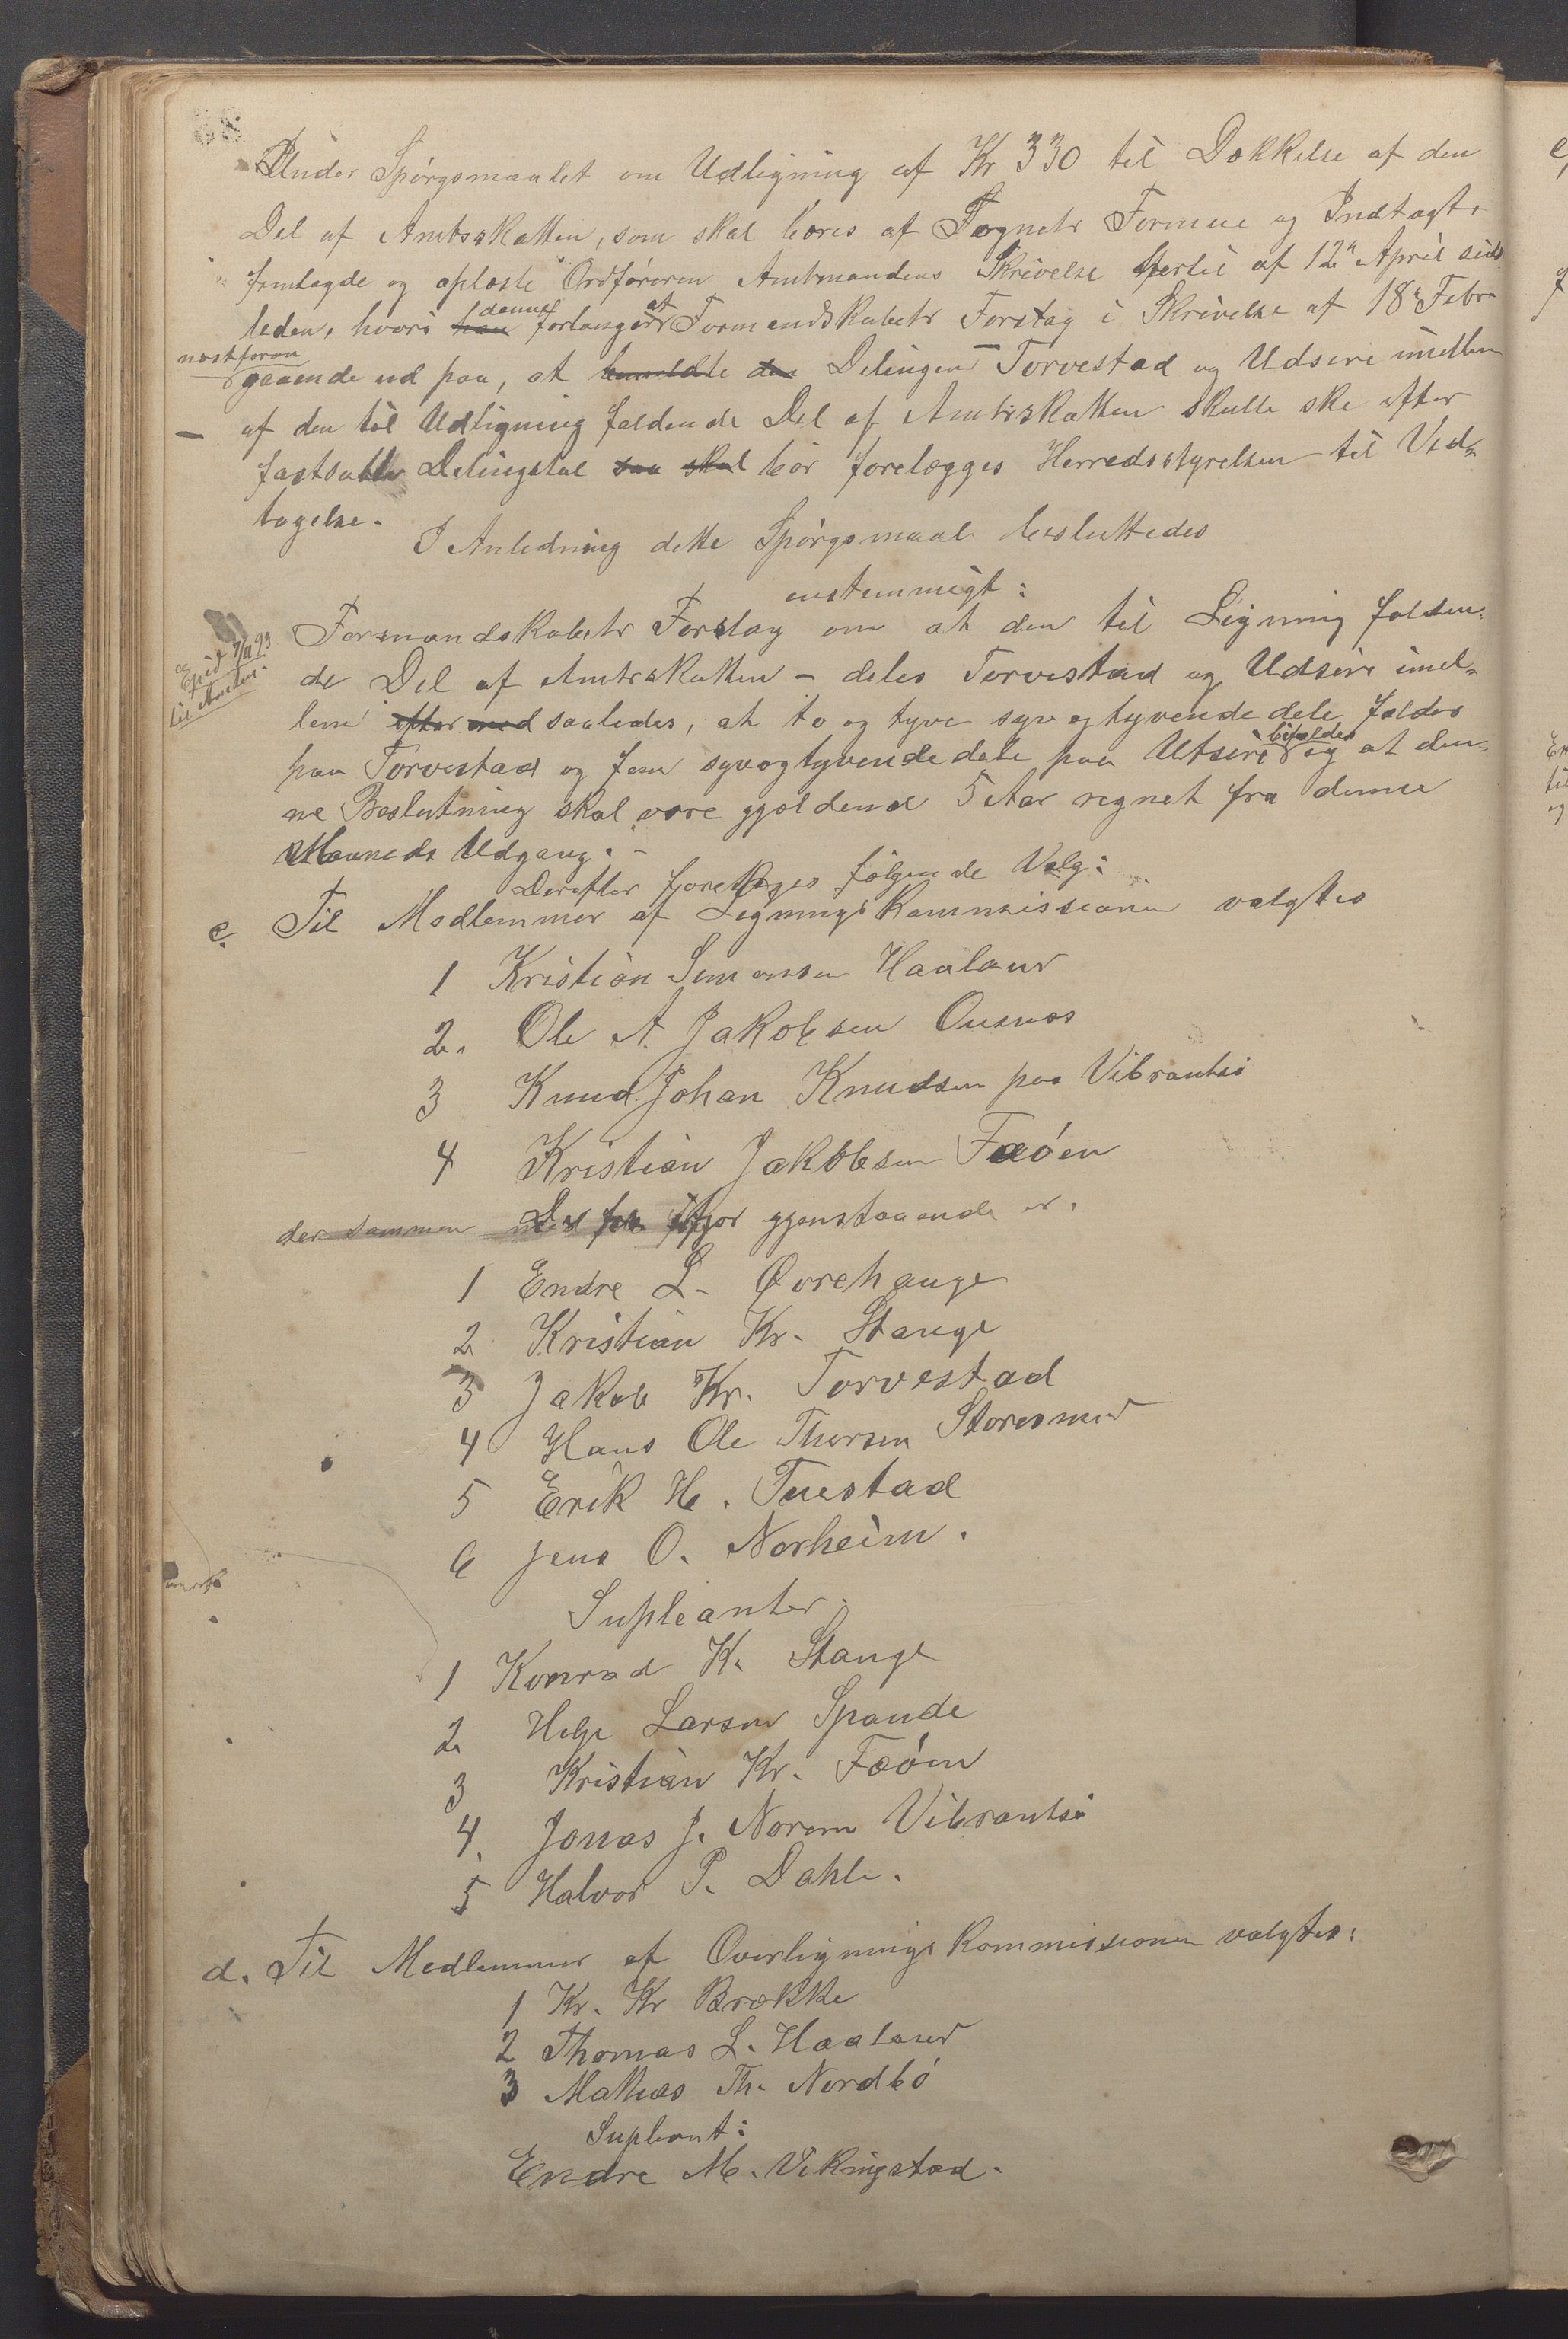 Under Spørgsmaalet om Udligning af Kr 330 til Dækkelse af den
Del af Amtsskatten, som skal bæres af Sognets Formue og Indtægt,
fremlagde og oplæste Ordføreren Amtmandens Skrivelse hertil af 12te April sidst-
leden, hvori han denne forlanger at Formandskabets Forslag i Skrivelse af 18de Febr
næstforan
gaaende ud paa, at den Delingen Torvestad og Udsire imellem
af den til Udligning faldende Del af Amtsskatten skulle ske efter
fastsatte Delingstal saa skal bør forelægges Herredsstyrelsen til Ved-
tagelse.
I Anledning dette Spørgsmaal besluttedes
enstemmigt:
Formandskabets Forslag om at den til Ligning falden-
de Del af Amtsskatten - deles Torvestad og Udsire imel-
lem efter med saaledes, at to og tyve syv og tyvende dele falder
paa Torvestad og fem syvogtyvende dele paa Utsire bifaldes og at den-
ne Beslutning skal være gjældende 5 Aar regnet fra denne
Maaneds Udgang. -
Derefter foretoges følgende Valg:
c. Til Medlemmer af Ligningskommissionen valgtes
1 Kristian Simonsen Haaland
2. Ole A Jakobsen Ousnæs
3 Knud Johan Knudsen paa Vibrantsø
4 Kristian Jakobsen Fæøen
der sammen med ifjor gjenstaaende er.
1 Endre L. Øvrehauge
2 Kristian Kr. Stange
3 Jakob Kr. Torvestad
4 Hans Ole Thorsen Storesund
5 Erik H. Tuestad
6 Jens O. Norheim.
Supleanter.
1 Konrad K. Stange
2 Helge Larsen Spande
3 Kristian Kr. Fæøen
4. Jonas J. Norem Vibrantsø
5 Halvor P. Dahle.
d. Til Medlemmer af Overligningskommissionen valgtes:
1 Kr. Kr Brække
2 Thomas L. Haaland
3 Mathias Th. Nordbø
Supleant:
Endre M. Vikingstad.